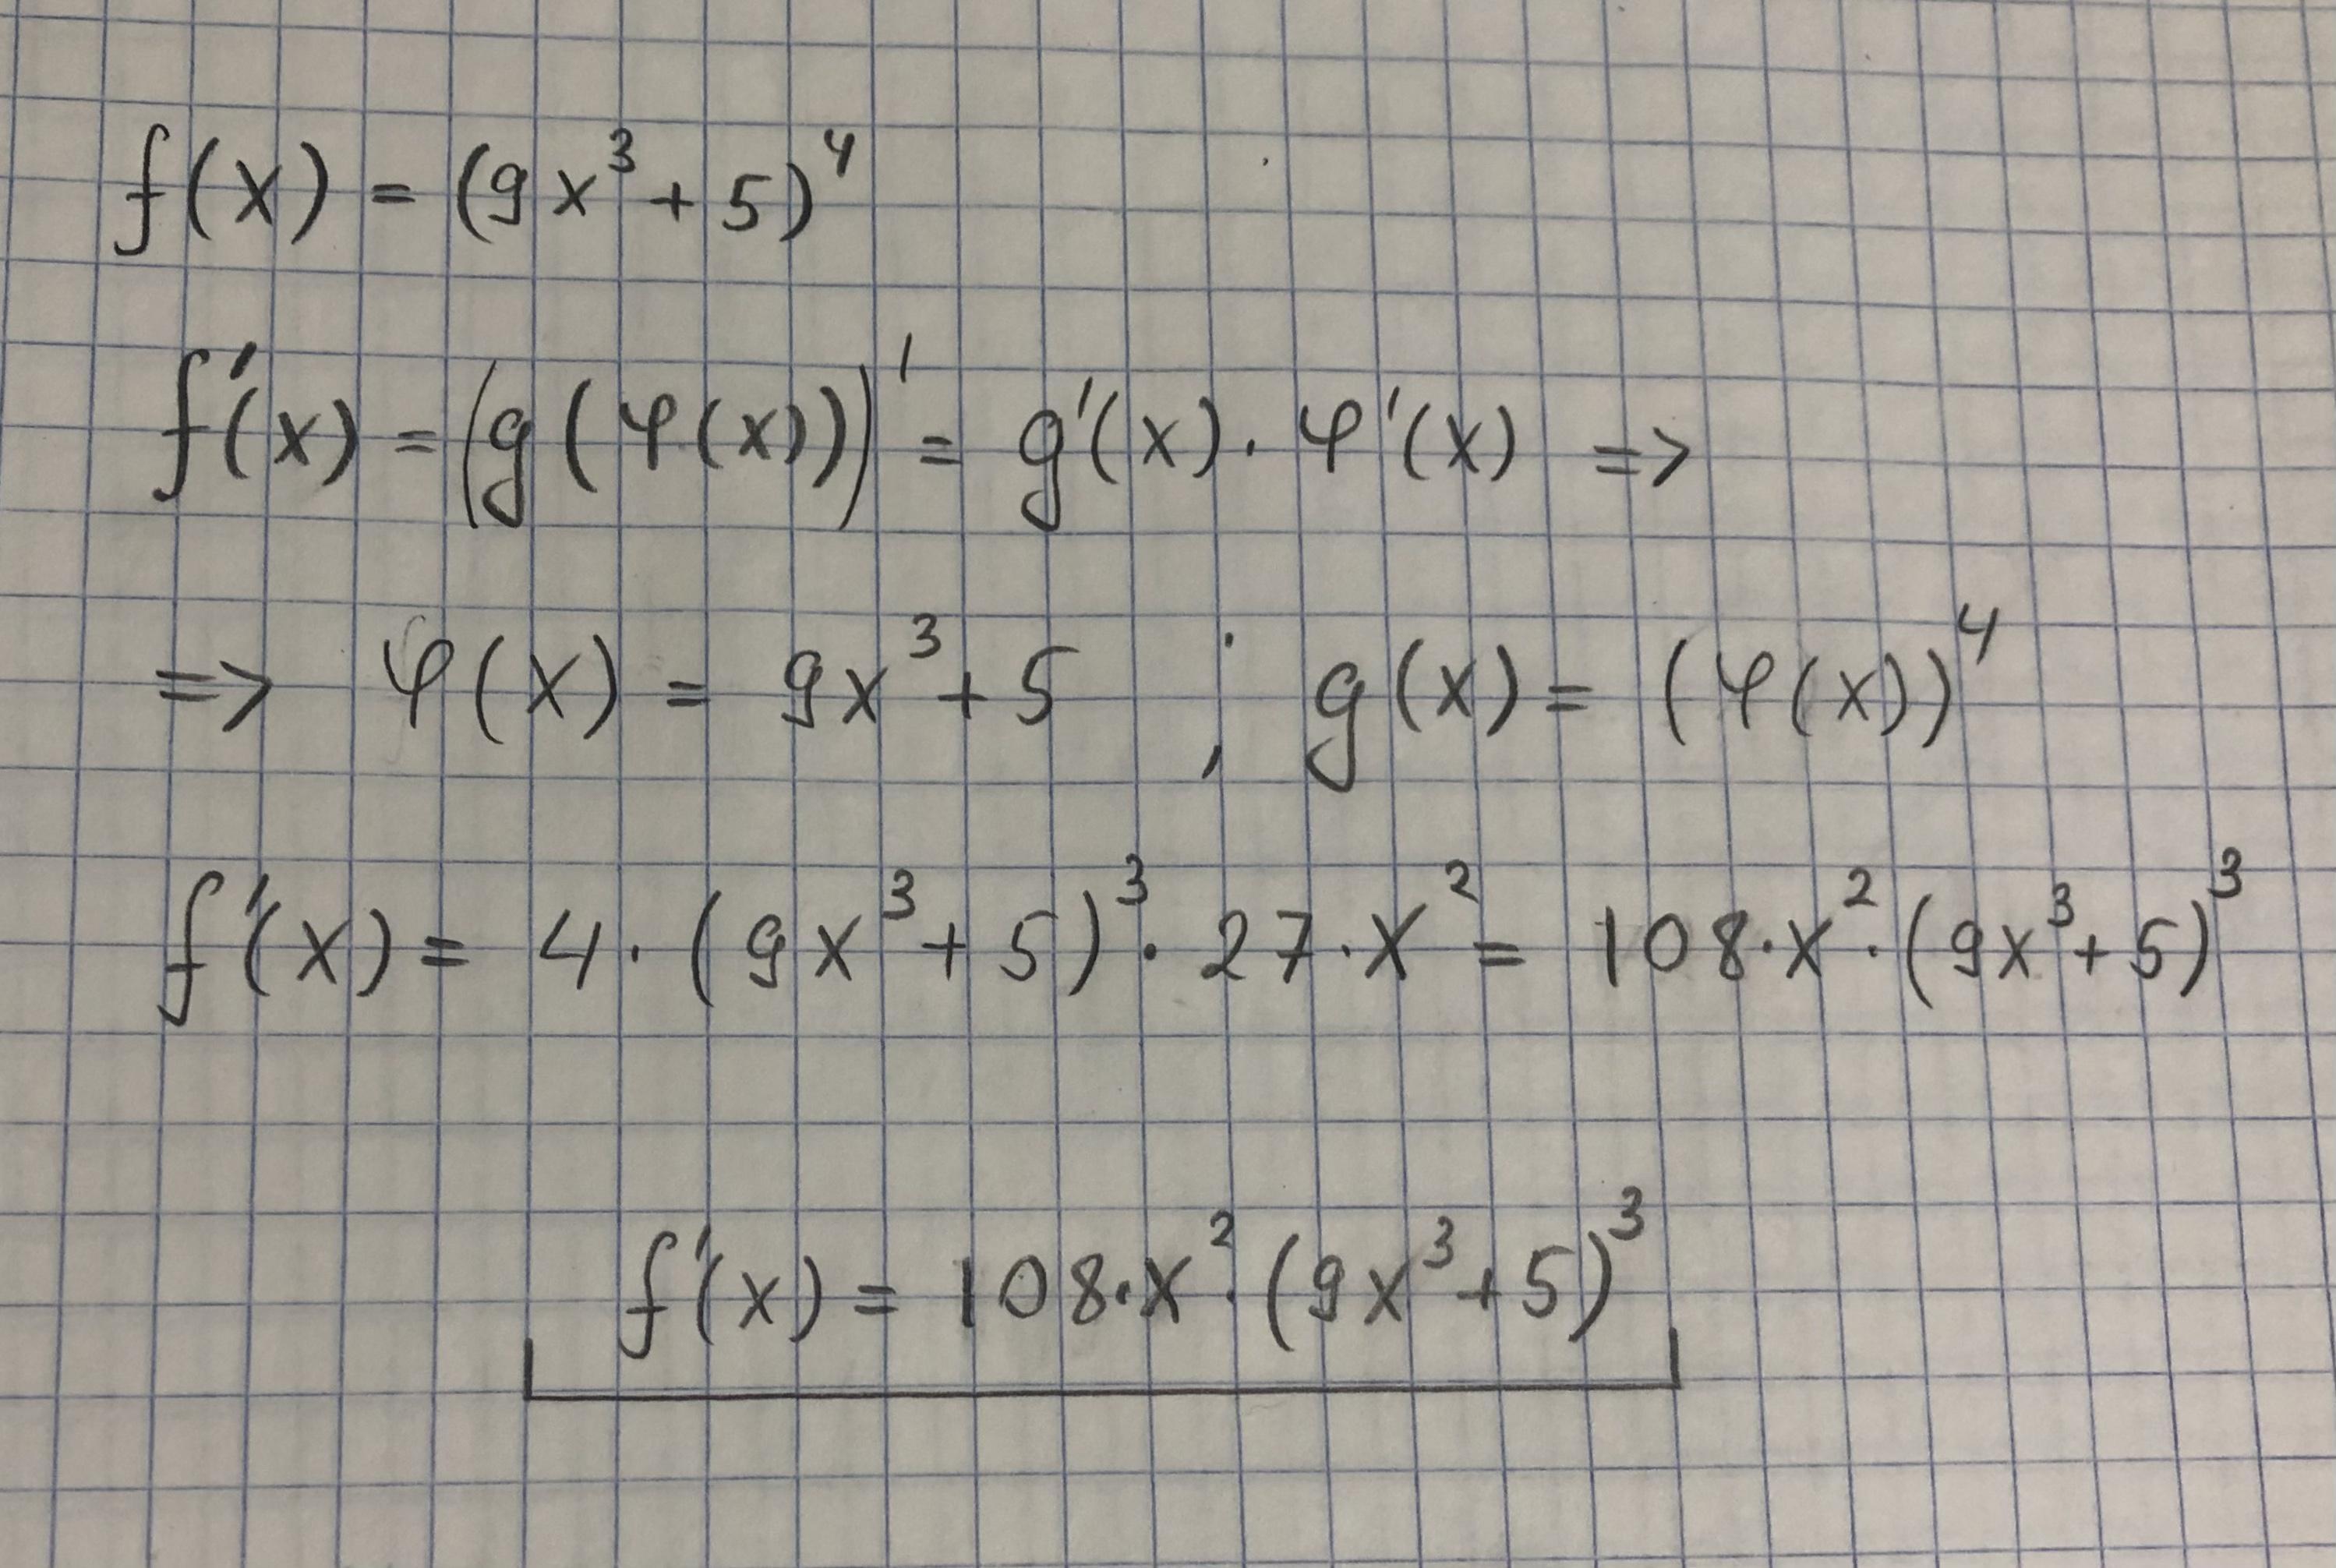 f(x) = (9x³ + 5)⁴
f'(x) = (g(φ(x)))' = g'(x) · φ'(x) =>
=> φ(x) = 9x³ + 5 ; g(x) = (φ(x))⁴
f'(x) = 4 · (9x³ + 5)³ · 27 · x² = 108 · x² · (9x³ + 5)³
f'(x) = 108 · x² · (9x³ + 5)³